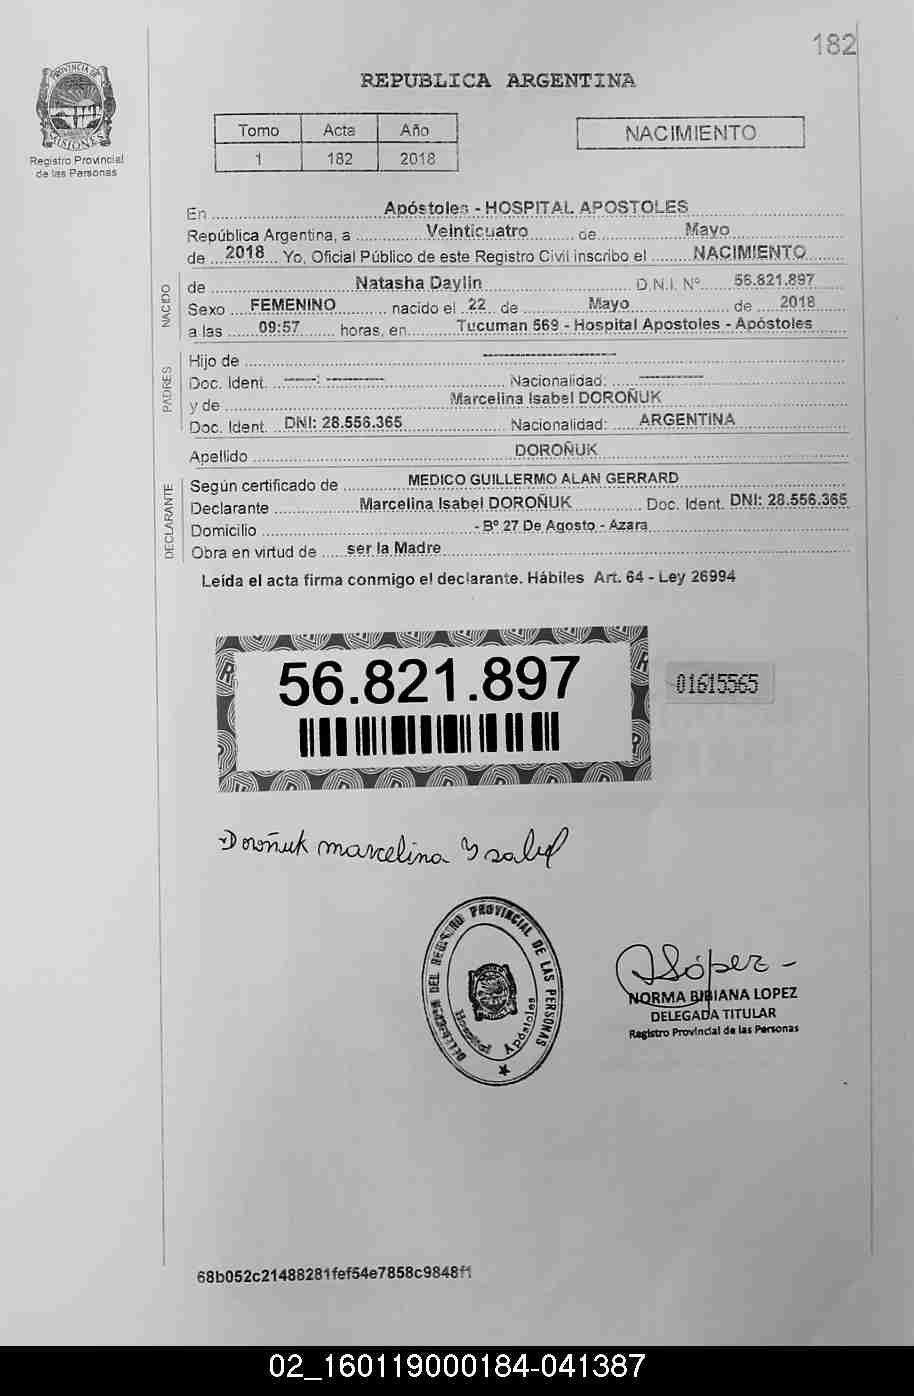 182
PROVINCIA DE MISIONES
Registro Provincial
de las Personas
REPUBLICA ARGENTINA
Tomo Acta Año
1 182 2018
NACIMIENTO
En Apóstoles - HOSPITAL APOSTOLES
República Argentina, a Veinticuatro de Mayo
de 2018 Yo, Oficial Público de este Registro Civil inscribo el NACIMIENTO
NACIDO
de Natasha Daylin D.N.I. Nº 56.821.897
Sexo FEMENINO nacido el 22 de Mayo de 2018
a las 09:57 horas, en Tucuman 569 - Hospital Apostoles - Apóstoles
PADRES
Hijo de --------------------
Doc. Ident. -----: ---------- Nacionalidad: ----------
y de Marcelina Isabel DOROÑUK
Doc. Ident. DNI: 28.556.365 Nacionalidad: ARGENTINA
Apellido DOROÑUK
DECLARANTE
Según certificado de MEDICO GUILLERMO ALAN GERRARD
Declarante Marcelina Isabel DOROÑUK Doc. Ident. DNI: 28.556.365
Domicilio - Bº 27 De Agosto - Azara
Obra en virtud de ser la Madre
Leída el acta firma conmigo el declarante. Hábiles Art. 64 - Ley 26994
56.821.897
01615565
Doroñuk marcelina Ysabel
DELEGACION DEL REGISTRO PROVINCIAL DE LAS PERSONAS
Hospital Apóstoles
López
NORMA BIBIANA LOPEZ
DELEGADA TITULAR
Registro Provincial de las Personas
68b052c21488281fef54e7858c9848f1
02_160119000184-041387